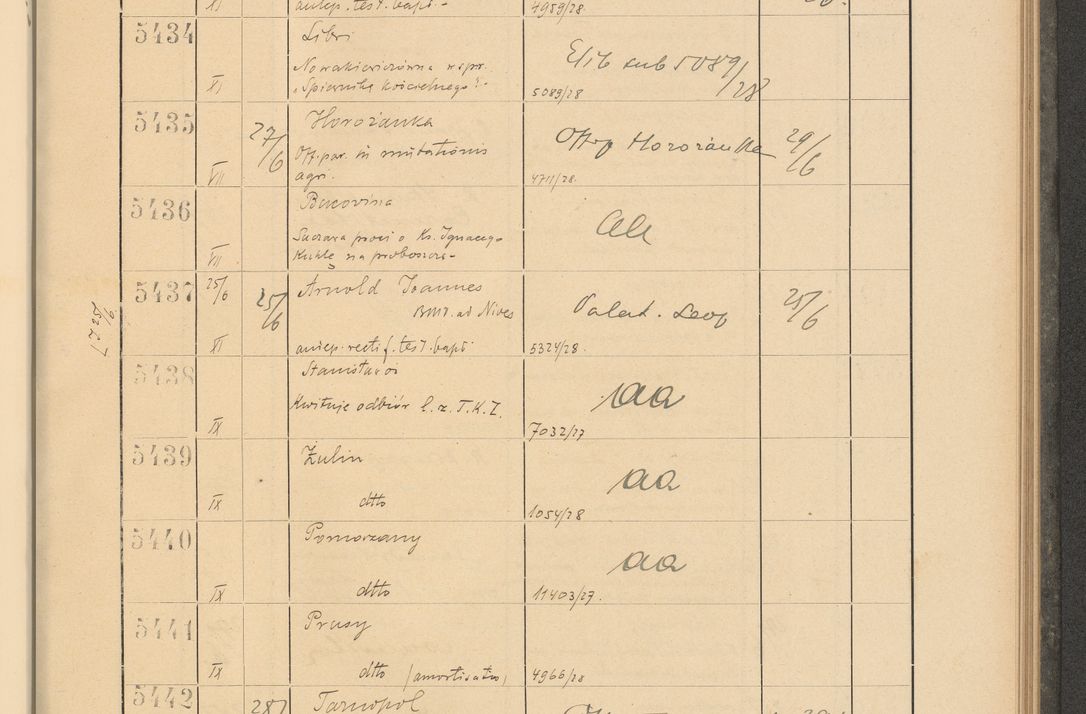 XI antep. test. bapt. - 4959/28.
5434 Libri
Nowakiewiczówna w spr. Elib sub 5089/28
XI „Śpiewnika kościelnego". 5089/28
5435 27/6 Horożanka
Off. par. in mutationis Off. p Horożanka 29/6
VII agri. 4711/28.
5436 Bucovina
Suczawa prosi o Ks. Ignacego aa
VII Kukłę na proboszcza -
5437 25/6 25/6 Arnold Joannes
B.M.V. ad Nives Palat. Leop 25/6
XI antep. rectif. test. bapt. 5324/28.
5438 Stanisławów
Kwituje odbiór l. z. T.K.Z. aa
IX 7032/27
5439 Żulin
aa
IX dtto 1054/28
5440 Pomorzany
aa
IX dtto 11403/27.
5441 Prusy
IX dtto (amortisatio) 4966/28
5442 287 Tarnopol